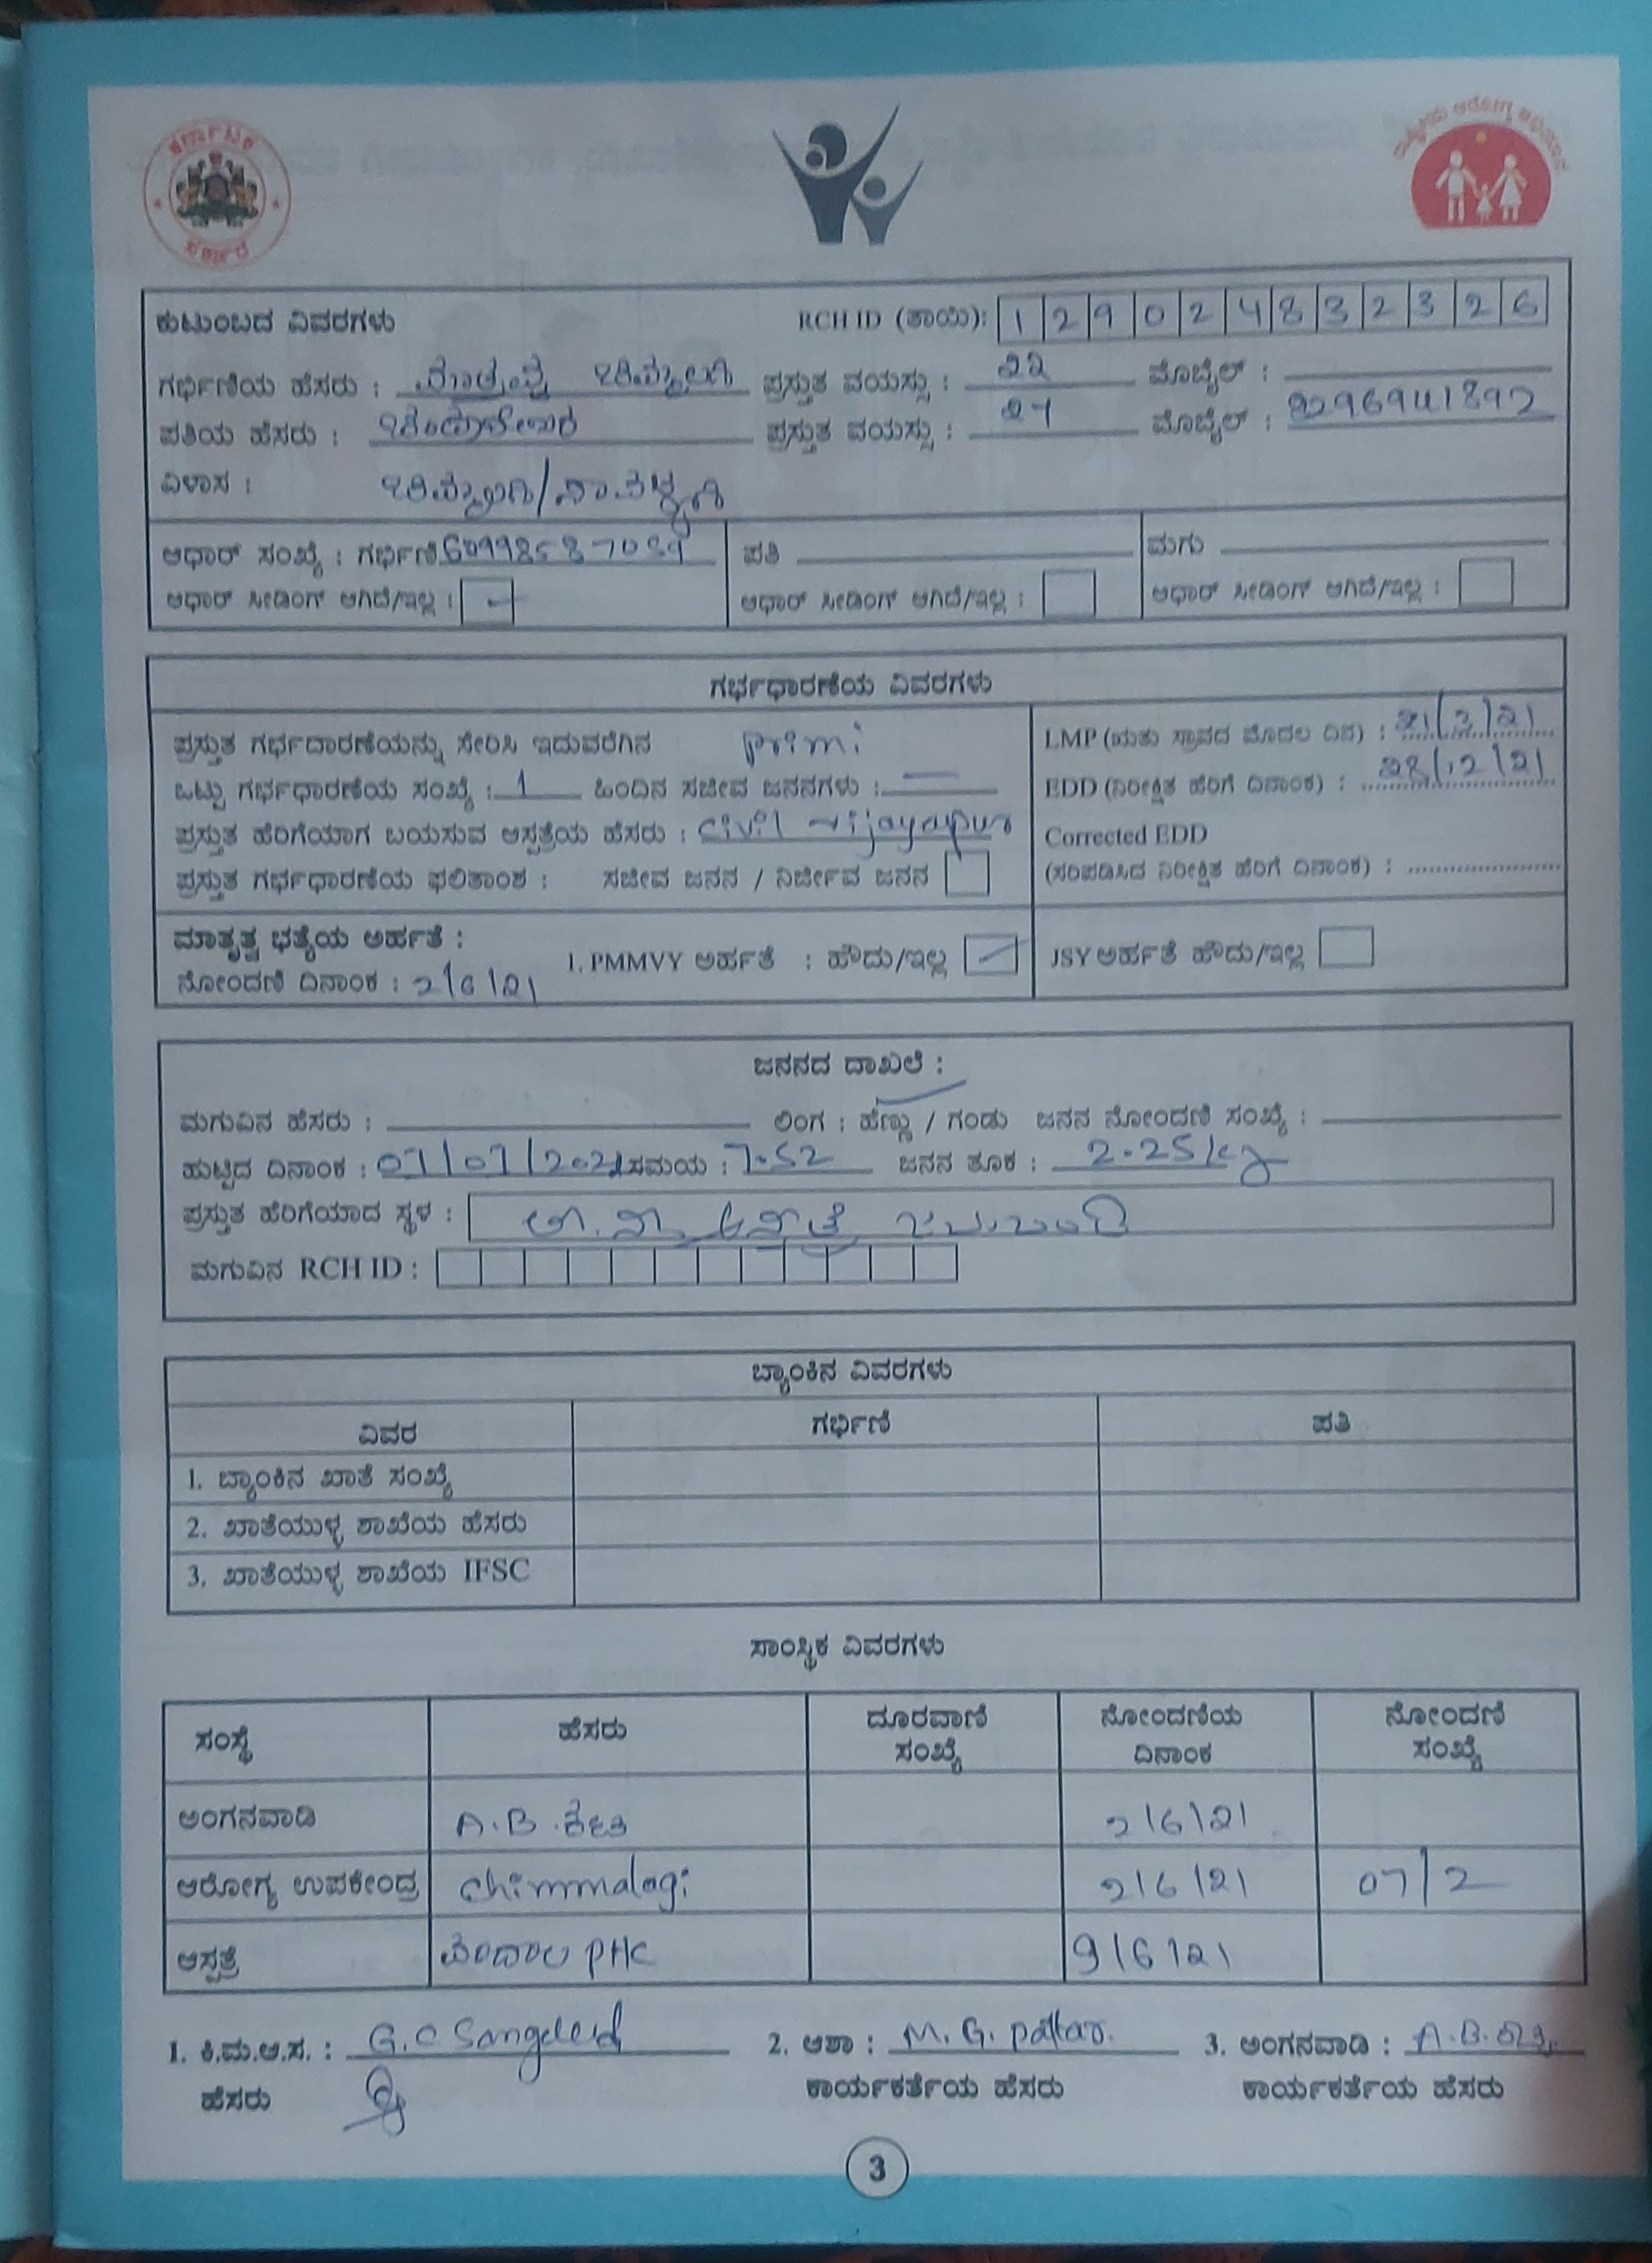 ಕರ್ನಾಟಕ
ಸರ್ಕಾರ
ರಾಷ್ಟ್ರೀಯ ಆರೋಗ್ಯ ಅಭಿಯಾನ
ಕುಟುಂಬದ ವಿವರಗಳು RCH ID (ತಾಯಿ): 129024832326
ಗರ್ಭಿಣಿಯ ಹೆಸರು : ಪ್ರಸ್ತುತ ವಯಸ್ಸು : 22 ಮೊಬೈಲ್ :
ಪತಿಯ ಹೆಸರು : ಪ್ರಸ್ತುತ ವಯಸ್ಸು : 27 ಮೊಬೈಲ್ :
ವಿಳಾಸ : ಚಿಮ್ಮಲಗಿ/
ಆಧಾರ್ ಸಂಖ್ಯೆ : ಗರ್ಭಿಣಿ ಪತಿ ಮಗು
ಆಧಾರ್ ಸೀಡಿಂಗ್ ಆಗಿದೆ/ಇಲ್ಲ : ಆಧಾರ್ ಸೀಡಿಂಗ್ ಆಗಿದೆ/ಇಲ್ಲ : ಆಧಾರ್ ಸೀಡಿಂಗ್ ಆಗಿದೆ/ಇಲ್ಲ :
ಗರ್ಭಧಾರಣೆಯ ವಿವರಗಳು
ಪ್ರಸ್ತುತ ಗರ್ಭದಾರಣೆಯನ್ನು ಸೇರಿಸಿ ಇದುವರೆಗಿನ primi
ಒಟ್ಟು ಗರ್ಭಧಾರಣೆಯ ಸಂಖ್ಯೆ : 1 ಹಿಂದಿನ ಸಜೀವ ಜನನಗಳು : —
ಪ್ರಸ್ತುತ ಹೆರಿಗೆಯಾಗ ಬಯಸುವ ಆಸ್ಪತ್ರೆಯ ಹೆಸರು : civil vijayapur
ಪ್ರಸ್ತುತ ಗರ್ಭಧಾರಣೆಯ ಫಲಿತಾಂಶ : ಸಜೀವ ಜನನ / ನಿರ್ಜೀವ ಜನನ
LMP (ಋತು ಸ್ರಾವದ ಮೊದಲ ದಿನ) : 21/3/21
EDD (ನಿರೀಕ್ಷಿತ ಹೆರಿಗೆ ದಿನಾಂಕ) : 28/12/21
Corrected EDD
(ಸಂಪಡಿಸಿದ ನಿರೀಕ್ಷಿತ ಹೆರಿಗೆ ದಿನಾಂಕ) :
ಮಾತೃತ್ವ ಭತ್ಯೆಯ ಅರ್ಹತೆ :
1. PMMVY ಅರ್ಹತೆ : ಹೌದು/ಇಲ್ಲ JSY ಅರ್ಹತೆ ಹೌದು/ಇಲ್ಲ
ನೋಂದಣಿ ದಿನಾಂಕ : 2/6/21
ಜನನದ ದಾಖಲೆ :
ಮಗುವಿನ ಹೆಸರು : ಲಿಂಗ : ಹೆಣ್ಣು / ಗಂಡು ಜನನ ನೋಂದಣಿ ಸಂಖ್ಯೆ :
ಹುಟ್ಟಿದ ದಿನಾಂಕ : ಸಮಯ : 7.52 ಜನನ ತೂಕ : 2.25 kg
ಪ್ರಸ್ತುತ ಹೆರಿಗೆಯಾದ ಸ್ಥಳ :
ಮಗುವಿನ RCH ID :
ಬ್ಯಾಂಕಿನ ವಿವರಗಳು
ವಿವರ ಗರ್ಭಿಣಿ ಪತಿ
1. ಬ್ಯಾಂಕಿನ ಖಾತೆ ಸಂಖ್ಯೆ
2. ಖಾತೆಯುಳ್ಳ ಶಾಖೆಯ ಹೆಸರು
3. ಖಾತೆಯುಳ್ಳ ಶಾಖೆಯ IFSC
ಸಾಂಸ್ಥಿಕ ವಿವರಗಳು
ಸಂಸ್ಥೆ ಹೆಸರು ದೂರವಾಣಿ ಸಂಖ್ಯೆ ನೋಂದಣಿಯ ದಿನಾಂಕ ನೋಂದಣಿ ಸಂಖ್ಯೆ
ಅಂಗನವಾಡಿ A.B. 2/6/21
ಆರೋಗ್ಯ ಉಪಕೇಂದ್ರ chimmalagi 2/6/21 07/2
ಆಸ್ಪತ್ರೆ PHC 9/6/21
1. ಕಿ.ಮ.ಆ.ಸ. : G.C 2. ಆಶಾ : M. G. pattar. 3. ಅಂಗನವಾಡಿ : A.B.
ಹೆಸರು ಕಾರ್ಯಕರ್ತೆಯ ಹೆಸರು ಕಾರ್ಯಕರ್ತೆಯ ಹೆಸರು
3